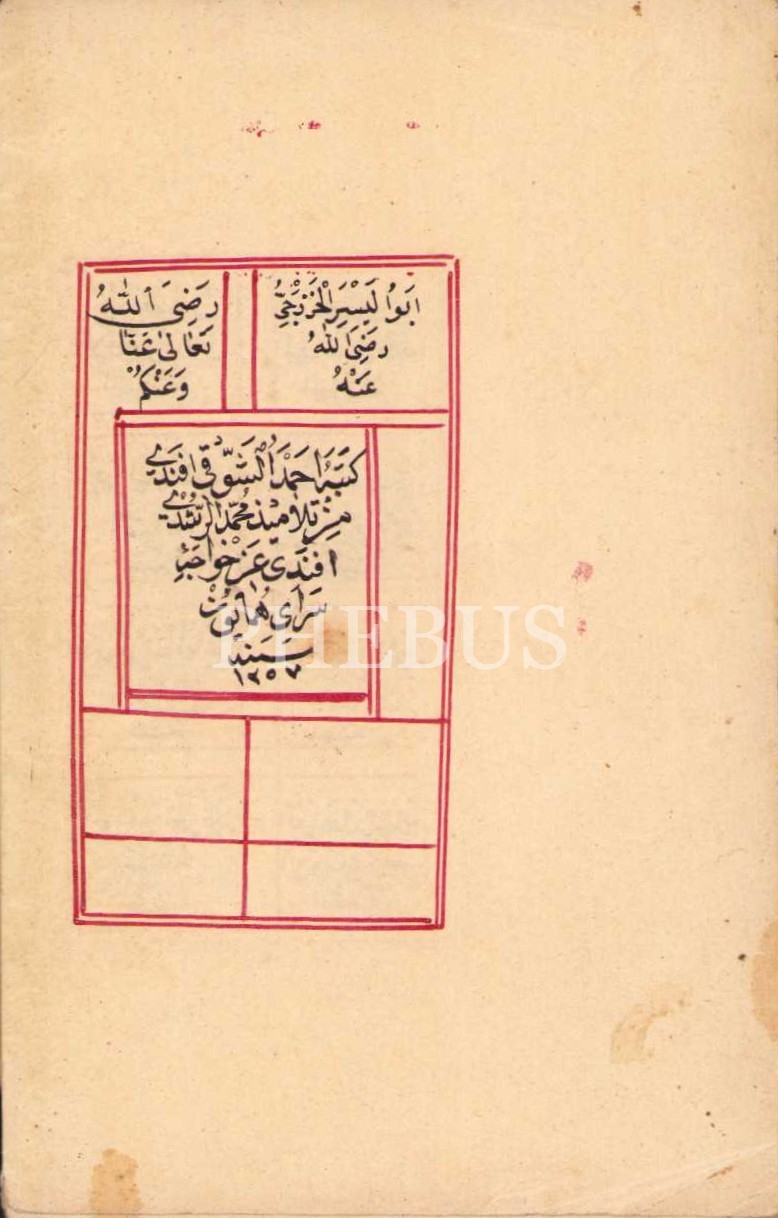 اَبُو الْيَسَرِ الْخَزْرَجِيُّ
رَضِىَ اللّٰهُ
عَنْهُ
رَضِىَ اللّٰهُ
تَعَالٰى عَنَّا
وَعَنْكُمْ
كتبه احمد الشوقى افندى
من تلاميذ محمد الرشدى
افندى عن خواجه
سراى همايون
سنه
١٢٥٧
PHEBUS